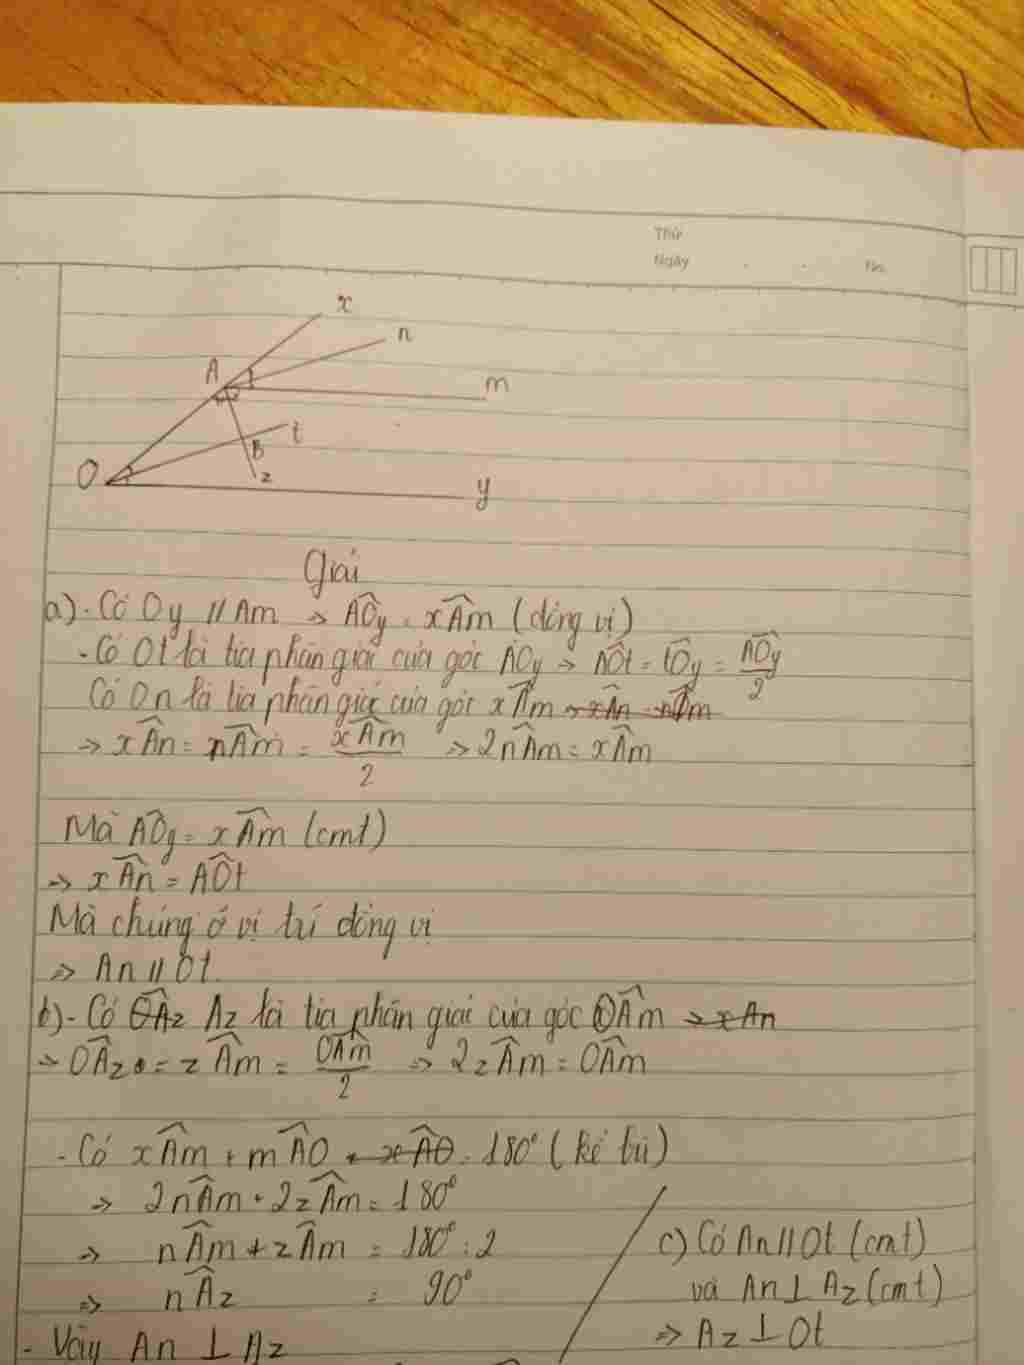 Thứ
Ngày . . No.
x
n
A
m
t
B
O
z
y
Giải
a) - Có Oy // Am => AÔy = xÂm (đồng vị)
- Có Ot là tia phân giác của góc AOy => AÔt = tÔy = AÔy/2
Có On là tia phân giác của góc xÂm
=> xÂn = nÂm = xÂm/2 => 2nÂm = xÂm
Mà AÔy = xÂm (cmt)
=> xÂn = AÔt
Mà chúng ở vị trí đồng vị
=> An // Ot.
b) - Có Az là tia phân giác của góc OÂm
=> OÂz = zÂm = OÂm/2 => 2zÂm = OÂm
- Có xÂm + mÂO = 180° (kề bù)
=> 2nÂm + 2zÂm = 180°
=> nÂm + zÂm = 180° : 2
=> nÂz = 90°
- Vậy An ⊥ Az
c) Có An // Ot (cmt)
và An ⊥ Az (cmt)
=> Az ⊥ Ot